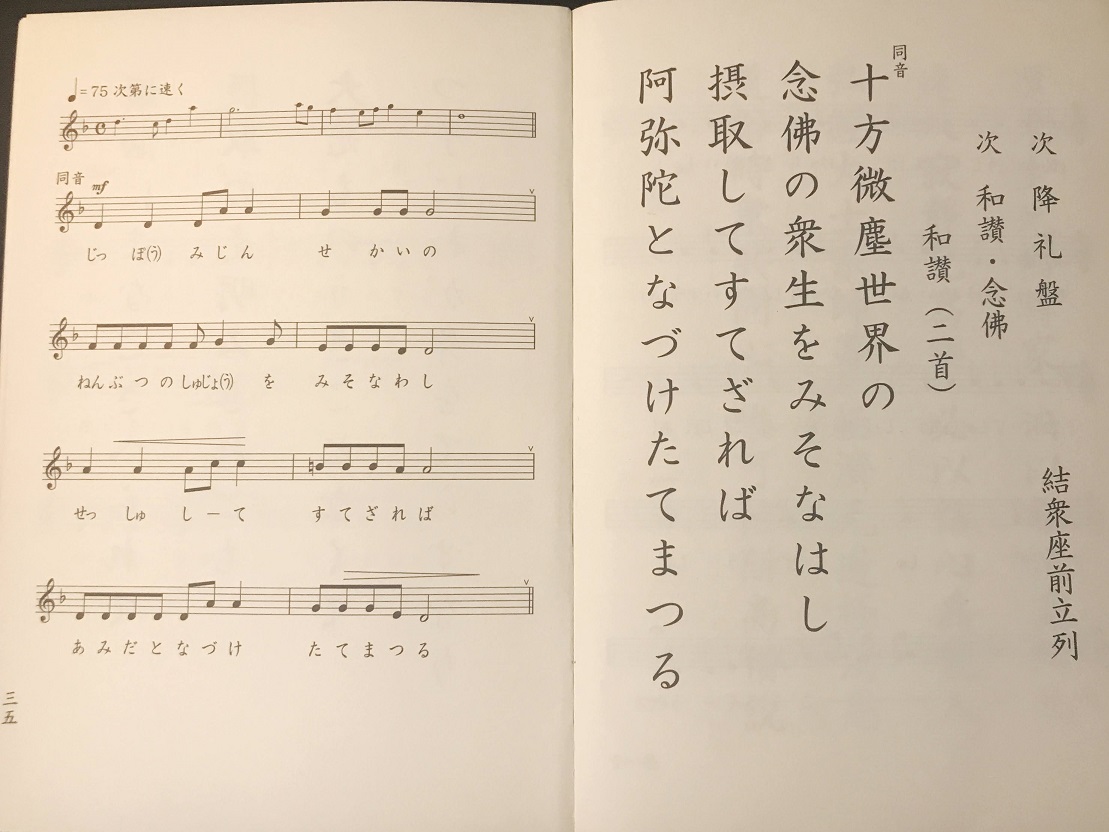 次 降礼盤 結衆座前立列
次 和讃・念佛
和讃(二首)
同音
十方微塵世界の
念佛の衆生をみそなはし
摂取してすてざれば
阿弥陀となづけたてまつる
=75 次第に速く
同音
mf
じっ ぽ(う) みじん せ かいの
ねんぶつのしゅじょ(う) を みそなわし
せっ しゅ し ー て すてざれば
あみだとなづけ たてまつる
三五